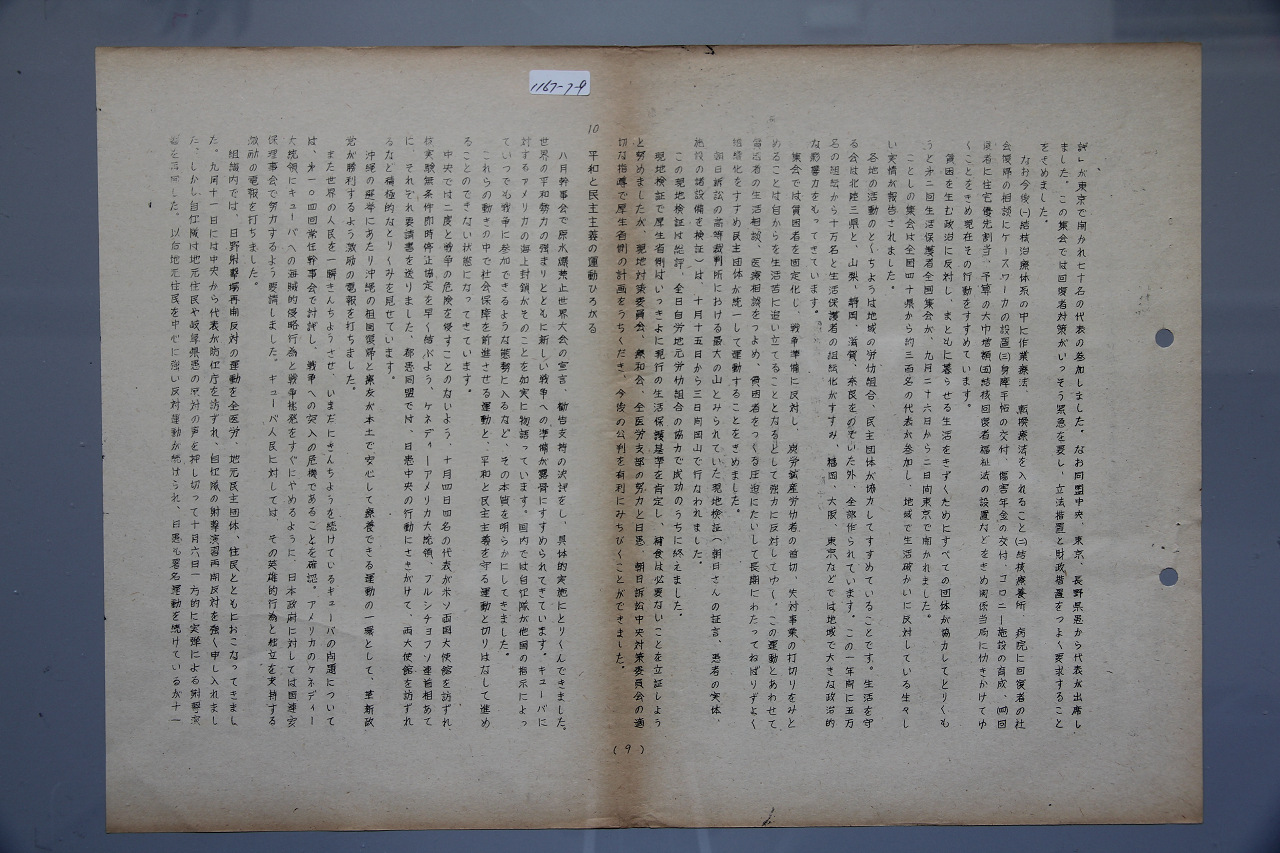 1167-7-9
議」が東京で開かれ七十名の代表の参加しました。なお同盟中央、東京、長野県患から代表が出席し
ました。この集会では回復者対策がいっそう緊急を要し、立法措置と財政措置をつよく要求すること
をきめました。
なお今後㈠結核治療体系の中に作業療法、転換療法を入れること㈡結核療養所、病院に回復者の社
会復帰の相談にケースワーカの設置㈢身障手帖の交付、傷害年金の交付、コロニー施設の育成、㈣回
復者に住宅優先割当、予算の大巾増額㈤結核回復者福祉法の設置などをきめ関係当局に仂きかけてゆ
くことをきめ現在その行動をすすめています。
貧困を生む政治に反対し、まともに暮らせる生活をきずくためにすべての団体が協力してとりくも
うと才二回生活保護者全国集会が、九月二十六日から二日間東京で開かれました。
ことしの集会は全国四十県から約三百名の代表が参加し、地域で生活破かいに反対している生々し
い実情が報告されました。
各地の活動のとくちょうは地域の労仂組合、民主団体が協力してすすめていることです。生活を守
る会は北陸三県と、山梨、静岡、滋賀、奈良をのぞいた外、全部作られています。この一年間に五万
名の組織から十万名と生活保護者の組織化がすすみ、福岡、大阪、東京などでは地域で大きな政治的
な影響力をもってきています。
集会では貧困者を固定化し、戦争準備に反対し、炭労鉱産労仂者の首切、失対事業の打切りをみと
めることは自からを生活苦に追い立てることとなるとして強力に反対してゆく。この運動とあわせて
貧困者の生活相談、医療相談をつよめ、貧困者をつくる圧迫にたいして長期にわたってねばりずよく
組織化をすすめ民主団体が統一して運動することをきめました。
朝日訴訟の高等裁判所における最大の山とみられていた現地検証(朝日さんの証言、患者の実体、
施設の諸設備を検証)は、十月十五日から三日間岡山で行なわれました。
この現地検証は総評、全日自労地元労仂組合の協力で成功のうちに終えました。
現地検証で厚生省側はいっきょに現行の生活保護基準を肯定し、補食は必要ないことを立証しよう
と努めましたが、現地対策委員会、療和会、全医労支部の努力と日患、朝日訴訟中央対策委員会の適
切な指導で厚生省側の計画をうちくだき、今後の公判を有利にみちびくことができました。
10 平和と民主主義の運動ひろがる
八月幹事会で原水爆禁止世界大会の宣言、勧告支持の決議をし、具体的実施にとりくんできました。
世界の平和勢力の強まりとともに新しい戦争への準備が露骨にすすめられてきています。キューバに
対するアメリカの海上封鎖がそのことを如実に物語っています。国内では自衛隊が他国の指示によっ
ていつでも戦争に参加できるような態勢に入るなど、その本質を明らかにしてきました。
これらの動きの中で社会保障を前進させる運動と、平和と民主主義を守る運動と切りはなして進め
ることのできない状態になってきています。
中央では二度と戦争の危険を侵すことのないよう、十月四日四名の代表が米ソ両国大使館を訪ずれ、
核実験無条件即時停止協定を早く結ぶよう、ケネディーアメリカ大統領、フルシチョフソ連首相あて
に、それぞれ要請書を送りました、都患同盟では、日患中央の行動にさきがけて、両大使館を訪ずれ
るなど積極的なとりくみを見せています。
沖縄の選挙にあたり沖縄の祖国復帰と療友が本土で安心して療養できる運動の一環として、革新政
党が勝利するよう激励の電報を打ちました。
また世界の人民を一瞬きんちょうさせ、いまだにきんちょうを続けているキューバの問題について
は、才一〇四回常任幹事会で討議し、戦争への突入の危機であることを確認。アメリカのケネディー
大統領にキューバへの海賊的侵略行為と戦争挑発をすぐにやめるように、日本政府に対しては国連安
保理事会で努力するよう要請しました。キューバ人民に対しては、その英雄的行為と独立を支持する
激励の電報を打ちました。
組織内では、日野射撃場再開反対の運動を全医労、地元民主団体、住民とともにおこなってきまし
た。九月十一日には中央から代表が防衛庁を訪ずれ、自衛隊の射撃演習再開反対を強く申し入れまし
た。しかし自衛隊は地元住民や岐阜県患の反対の声を押し切って十月六日一方的に実弾による射撃演
習を再開した。以后地元住民を中心に強い反対運動が続けられ、日患も署名運動を続けているが十一
(9)